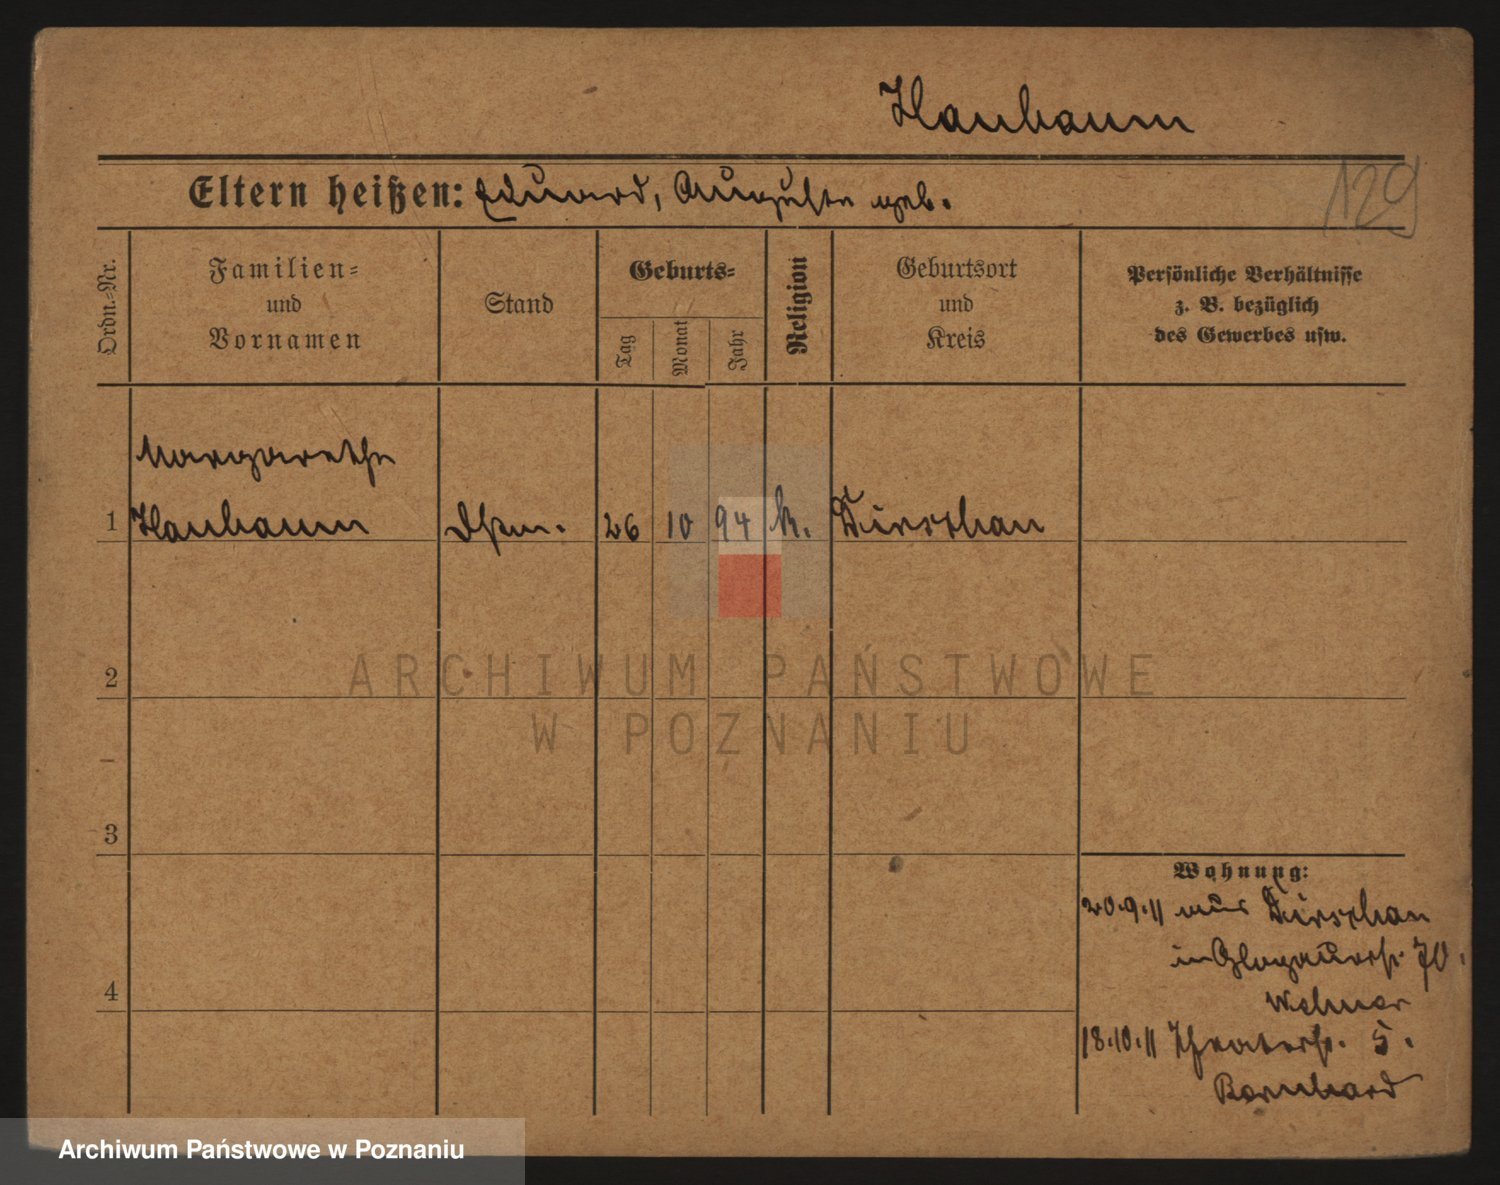 Haubaum
Eltern heißen: Eduard, Auguste geb.
129
Ordn.-Nr.
Familien-
und
Vornamen
Stand
Geburts-
Tag
Monat
Jahr
Religion
Geburtsort
und
Kreis
Persönliche Verhältnisse
z. B. bezüglich
des Gewerbes usw.
Margarethe
1 Haubaum 26 10 94 k. Dirschau
2
3
4
Wohnung:
20.9.11 aus Dirschau
in Glogauerstr. 70.
18.10.11 Theaterstr. 5.
Bornhard
ARCHIWUM PAŃSTWOWE
W POZNANIU
Archiwum Państwowe w Poznaniu